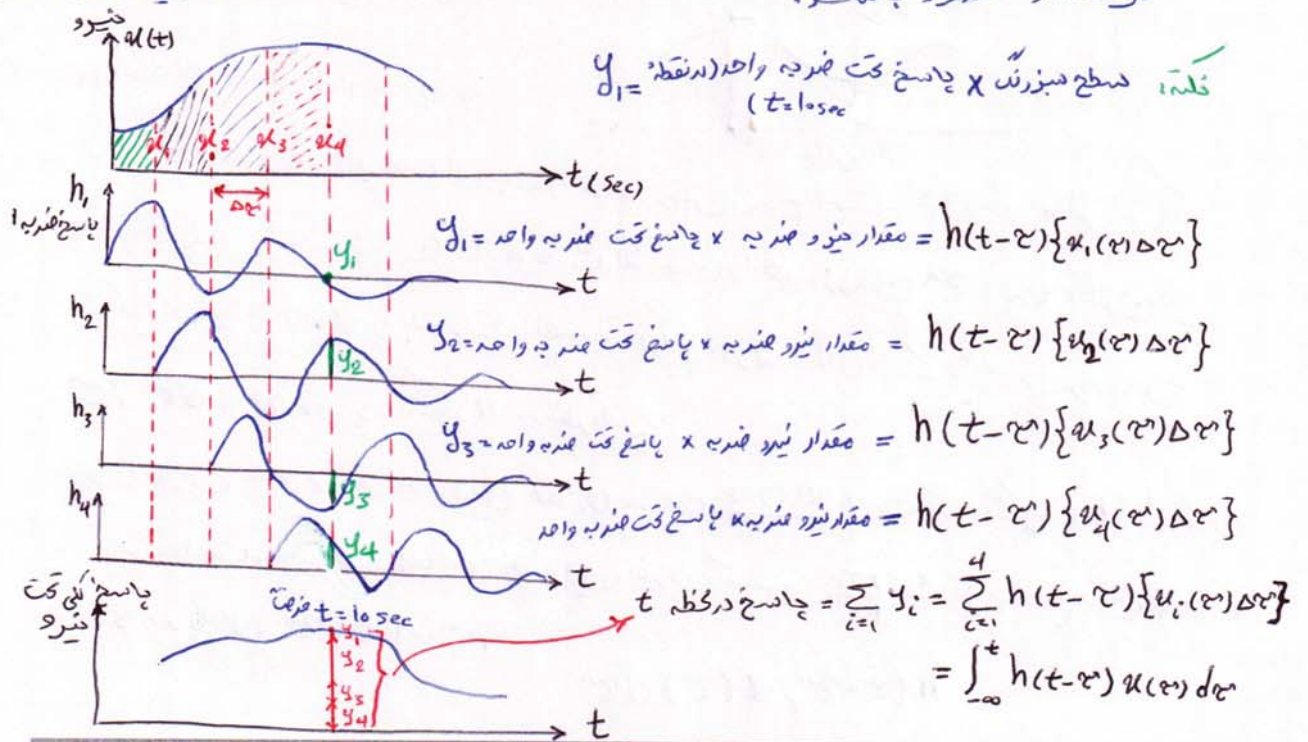 نیرو
u(t)
نکته: سطح سبزرنگ × پاسخ تحت ضربه واحد (در نقطه t=10sec) = y₁
u₁ u₂ u₃ u₄
t (sec)
Δτ
h₁
پاسخ ضربه ۱
y₁
t
y₁ = مقدار نیرو ضربه × پاسخ تحت ضربه واحد = h(t-τ){u₁(τ)Δτ}
h₂
y₂
t
y₂ = مقدار نیرو ضربه × پاسخ تحت ضربه واحد = h(t-τ){u₂(τ)Δτ}
h₃
y₃
t
y₃ = مقدار نیرو ضربه × پاسخ تحت ضربه واحد = h(t-τ){u₃(τ)Δτ}
h₄
y₄
t
مقدار نیرو ضربه × پاسخ تحت ضربه واحد = h(t-τ){u₄(τ)Δτ}
پاسخ کلی تحت
نیرو
t=10sec
y₁
y₂
y₃
y₄
t
پاسخ در لحظه t = ∑_{i=1} yᵢ = ∑_{i=1}^{4} h(t-τ){uᵢ(τ)Δτ}
= ∫_{-∞}^{t} h(t-τ) u(τ) dτ